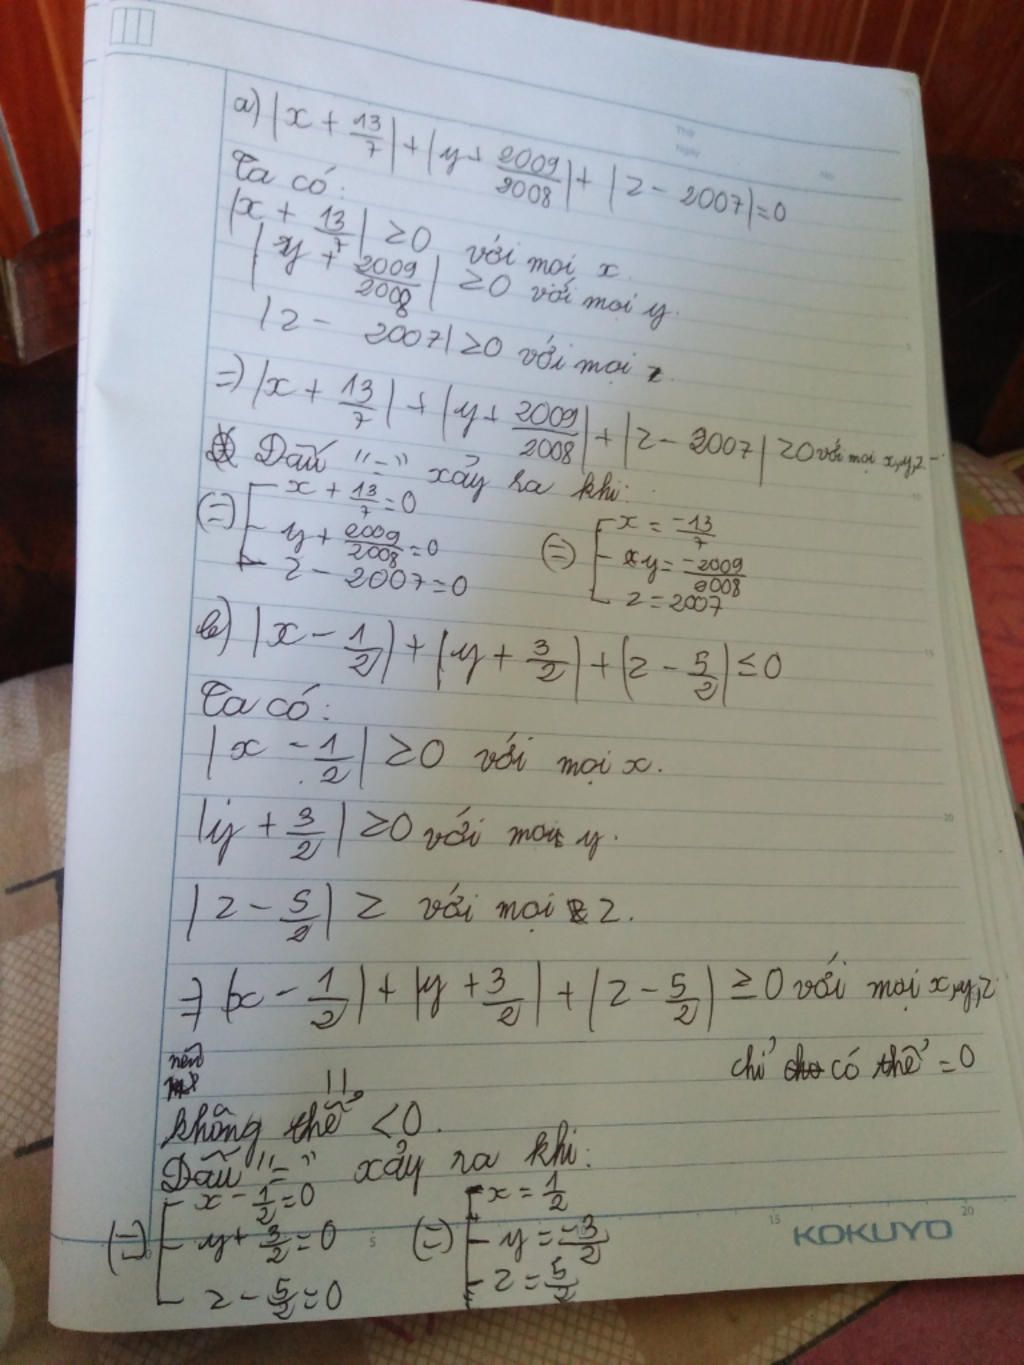 Thứ
Ngày
No
a) |x + 13/7| + |y + 2009/2008| + |z - 2007| = 0
Ta có:
|x + 13/7| ≥0 với mọi x.
|y + 2009/2008| ≥0 với mọi y.
|z - 2007| ≥0 với mọi z.
=) |x + 13/7| + |y + 2009/2008| + |z - 2007| ≥0 với mọi x,y,z
Dấu "=" xảy ra khi:
(=) [ x + 13/7 = 0 (=) [ x = -13/7
y + 2009/2008 = 0 y = -2009/2008
z - 2007 = 0 z = 2007
b) |x - 1/2| + |y + 3/2| + |z - 5/2| ≤ 0
Ta có:
|x - 1/2| ≥0 với mọi x.
|y + 3/2| ≥0 với mọi y.
|z - 5/2| ≥ với mọi z.
=) |x - 1/2| + |y + 3/2| + |z - 5/2| ≥0 với mọi x,y,z
nên chỉ có thể = 0
không thể <0.
Dấu "=" xảy ra khi:
(=) [ x - 1/2 = 0 (=) [ x = 1/2
y + 3/2 = 0 y = -3/2
z - 5/2 = 0 z = 5/2
5 15 20
KOKUYO